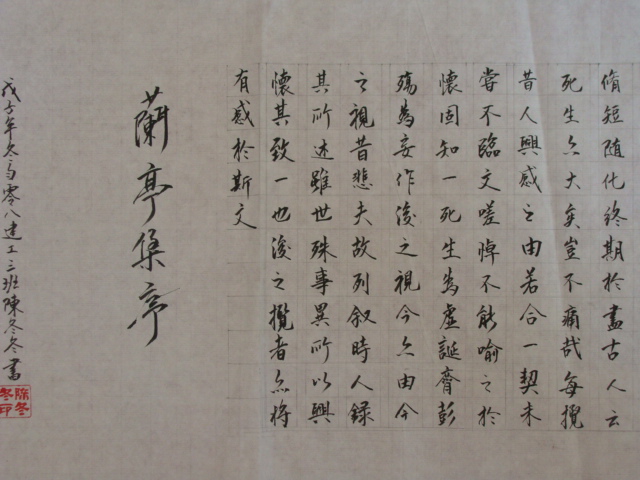 脩短随化终期於盡古人云
死生亦大矣豈不痛哉每攬
昔人興感之由若合一契未
嘗不臨文嗟悼不能喻之於
懷固知一死生為虛誕齊彭
殤為妄作後之視今亦由今
之視昔悲夫故列叙時人錄
其所述雖世殊事異所以興
懷其致一也後之攬者亦将
有感於斯文
蘭亭集序
戊子年冬書零八建工三班陳冬冬書
陈冬
冬印